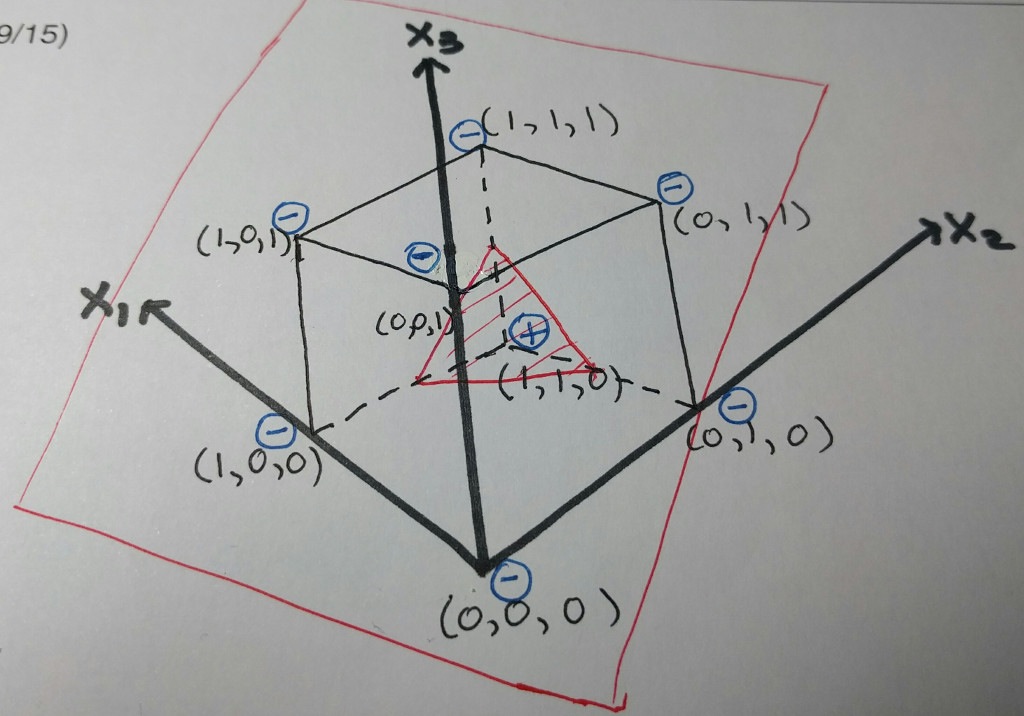 9/15)
X3
(1,1,1)
(1,0,1)
(0,1,1)
X2
X1
(0,0,1)
(1,1,0)
(0,1,0)
(1,0,0)
(0,0,0)